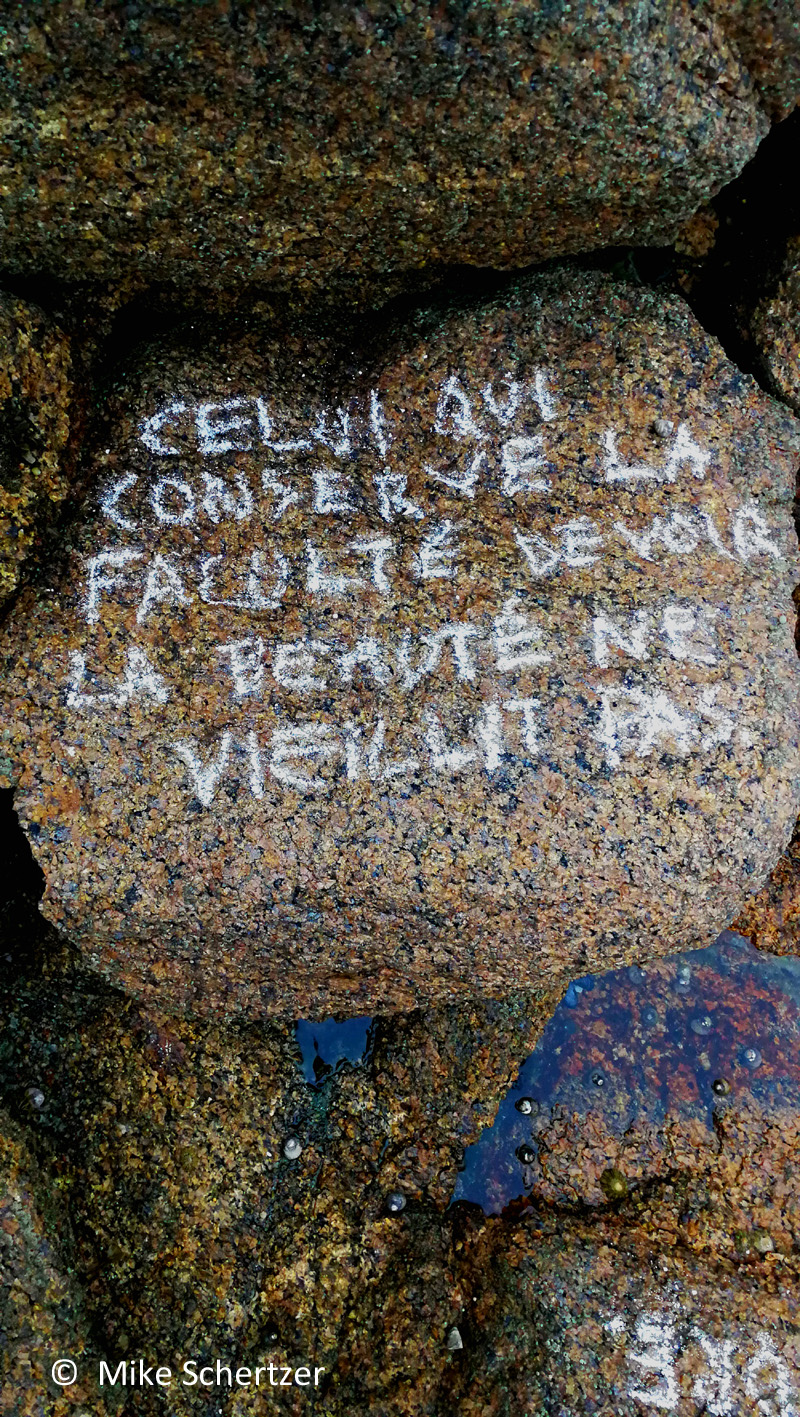 CELUI QUI
CONSERVE LA
FACULTÉ DE VOIR
LA BEAUTÉ NE
VIEILLIT PAS
© Mike Schertzer